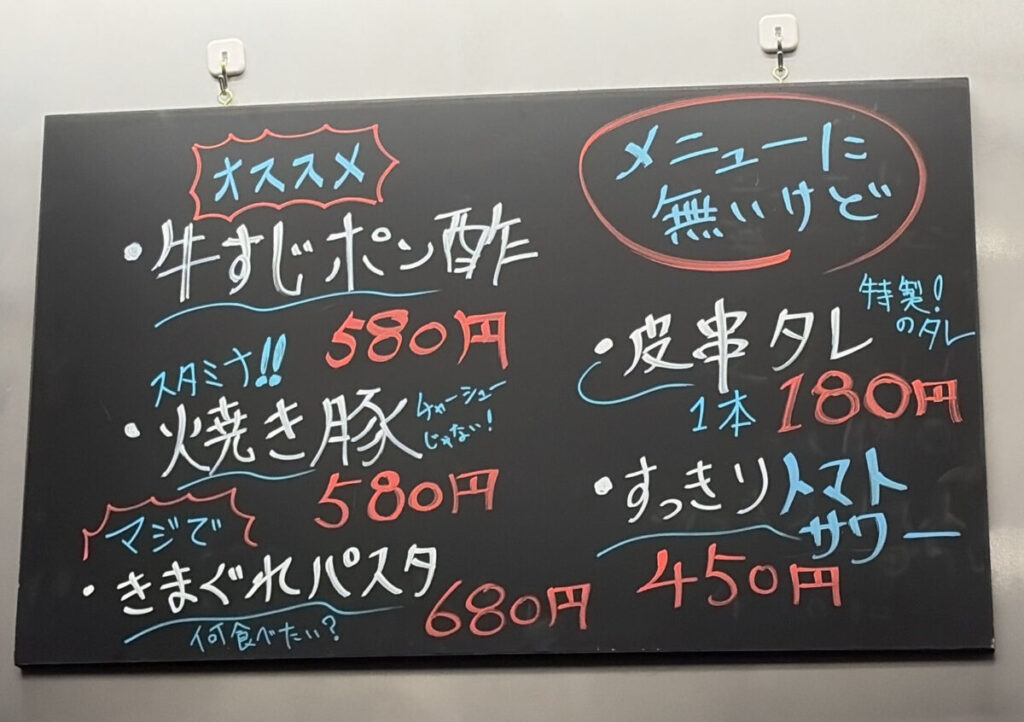 オススメ
・牛すじポン酢
580円
スタミナ!!
・焼き豚
チャーシュー
じゃない!
580円
マジで
・きまぐれパスタ
680円
何食べたい?
メニューに
無いけど
特製!
のタレ
・皮串タレ
1本 180円
・すっきりトマト
サワー
450円